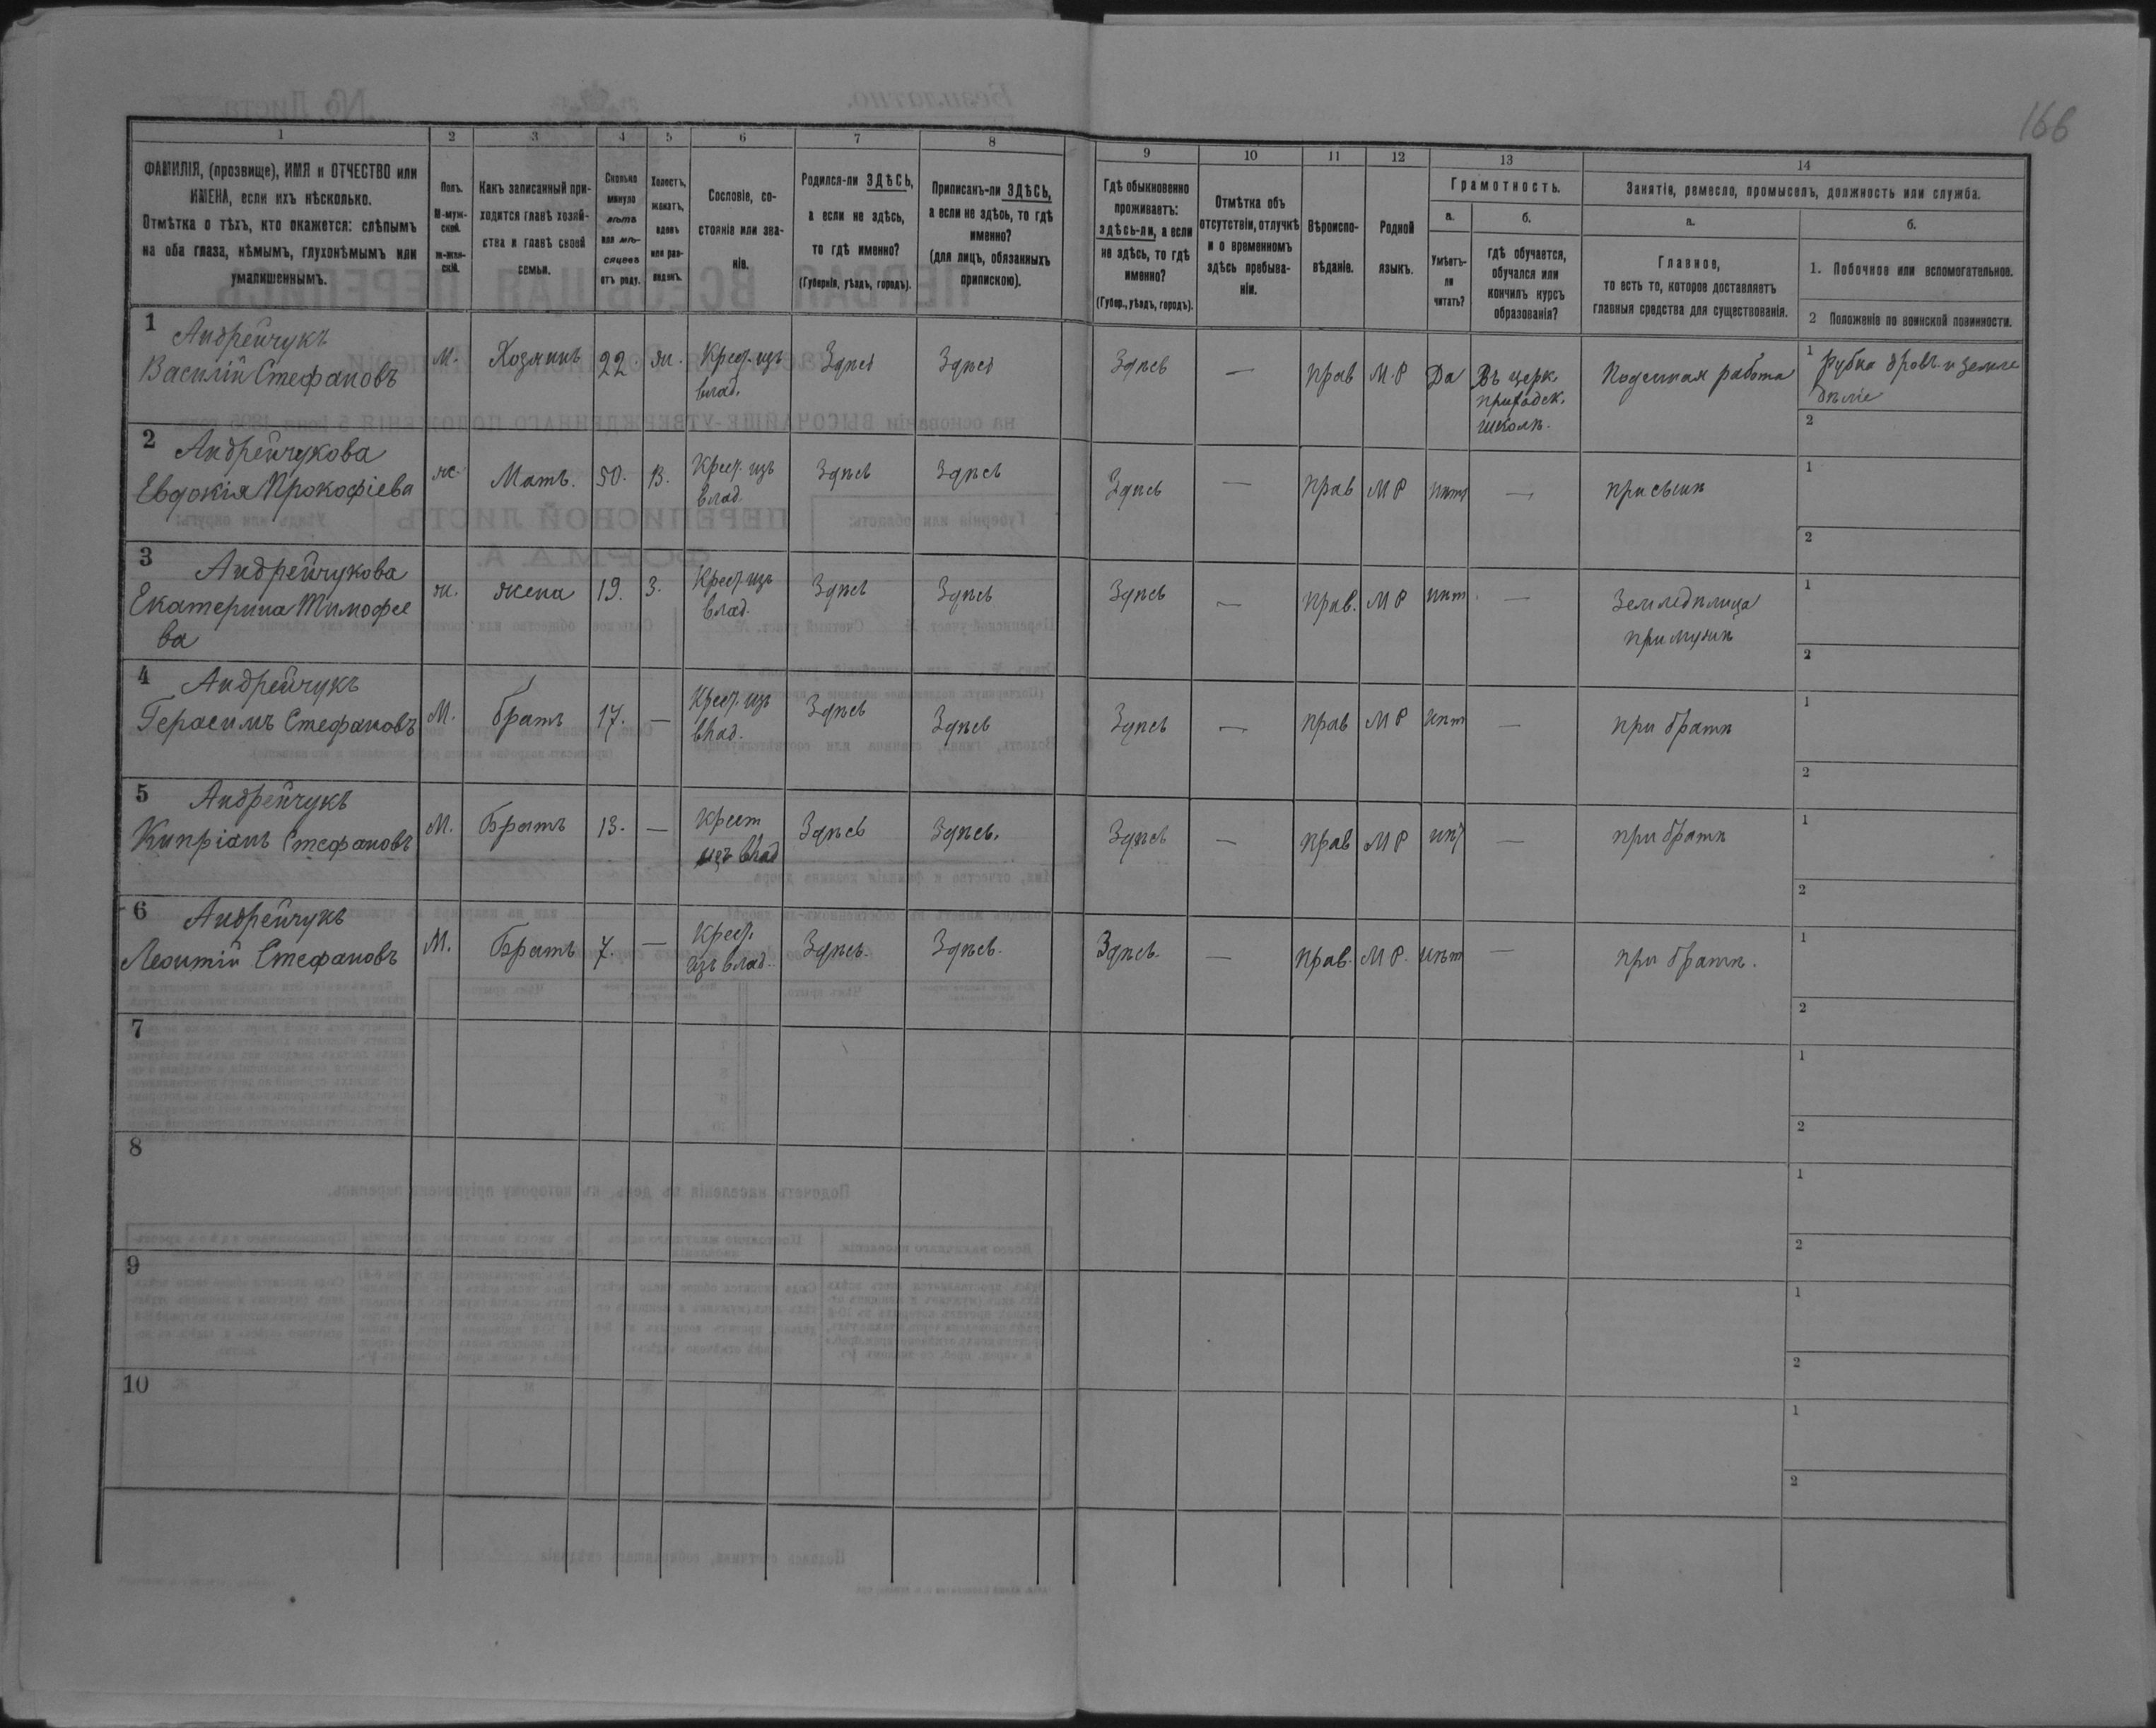 166
1 2 3 4 5 6 7 8 9 10 11 12 13 14
ФАМИЛІЯ, (прозвище), ИМЯ и ОТЧЕСТВО или
ИМЕНА, если ихъ нѣсколько.
Отмѣтка о тѣхъ, кто окажется: слѣпымъ
на оба глаза, нѣмымъ, глухонѣмымъ или
умалишеннымъ.
Полъ.
М-муж-
ской.
ж-жен-
скій.
Какъ записанный при-
ходится главѣ хозяй-
ства и главѣ своей
семьи.
Сколько
минуло
лѣтъ
или мѣ-
сяцевъ
отъ роду.
Холостъ,
женатъ,
вдовъ
или раз-
веденъ.
Сословіе, со-
стояніе или зва-
ніе.
Родился-ли ЗДѢСЬ,
а если не здѣсь,
то гдѣ именно?
(Губернія, уѣздъ, городъ).
Приписанъ-ли ЗДѢСЬ,
а если не здѣсь, то гдѣ
именно?
(для лицъ, обязанныхъ
припискою).
Гдѣ обыкновенно
проживаетъ:
здѣсь-ли, а если
не здѣсь, то гдѣ
именно?
(Губер., уѣздъ, городъ).
Отмѣтка объ
отсутствіи, отлучкѣ
и о временномъ
здѣсь пребыва-
ніи.
Вѣроиспо-
вѣданіе.
Родной
языкъ.
Грамотность.
а.
Умѣетъ-
ли
читать?
б.
гдѣ обучается,
обучался или
кончилъ курсъ
образованія?
Занятіе, ремесло, промыселъ, должность или служба.
а.
Главное,
то есть то, которое доставляетъ
главныя средства для существованія.
б.
1. Побочное или вспомогательное.
2 Положеніе по воинской повинности.
1 Андрейчукъ
Василій Стефановъ
М. Хозяинъ 22 ж.
Крест. изъ
влад.
Здѣсь Здѣсь Здѣсь — прав М.Р Да
Въ церк.
приходск.
школѣ.
Поденная работа
1 Рубка дровъ и земле
дѣліе
2
2 Андрейчукова
Евдокія Прокофіева
ж. Мать. 50. В.
Крест. изъ
влад.
Здѣсь Здѣсь Здѣсь — прав МР нѣт — при сынѣ
1
2
3 Андрейчукова
Екатерина Тимофее
ва
ж. жена 19. З.
Крест изъ
влад.
Здѣсь Здѣсь Здѣсь — прав. МР нѣт —
Земледѣлица
при мужѣ
1
2
4 Андрейчукъ
Герасимъ Стефановъ
М. братъ 17. —
Крест. изъ
влад.
Здѣсь Здѣсь Здѣсь — прав МР нѣт — при братѣ
1
2
5 Андрейчукъ
Кипріанъ Стефановъ
М. Братъ 13. —
Крест
изъ влад
Здѣсь Здѣсь. Здѣсь — прав МР нѣт — при братѣ
1
2
6 Андрейчукъ
Леонтій Стефановъ
М. Братъ 7. —
Крест.
изъ влад.
Здѣсь. Здѣсь. Здѣсь. — прав. МР. нѣт — при братѣ.
1
2
7
1
2
8
1
2
9
1
2
10
1
2